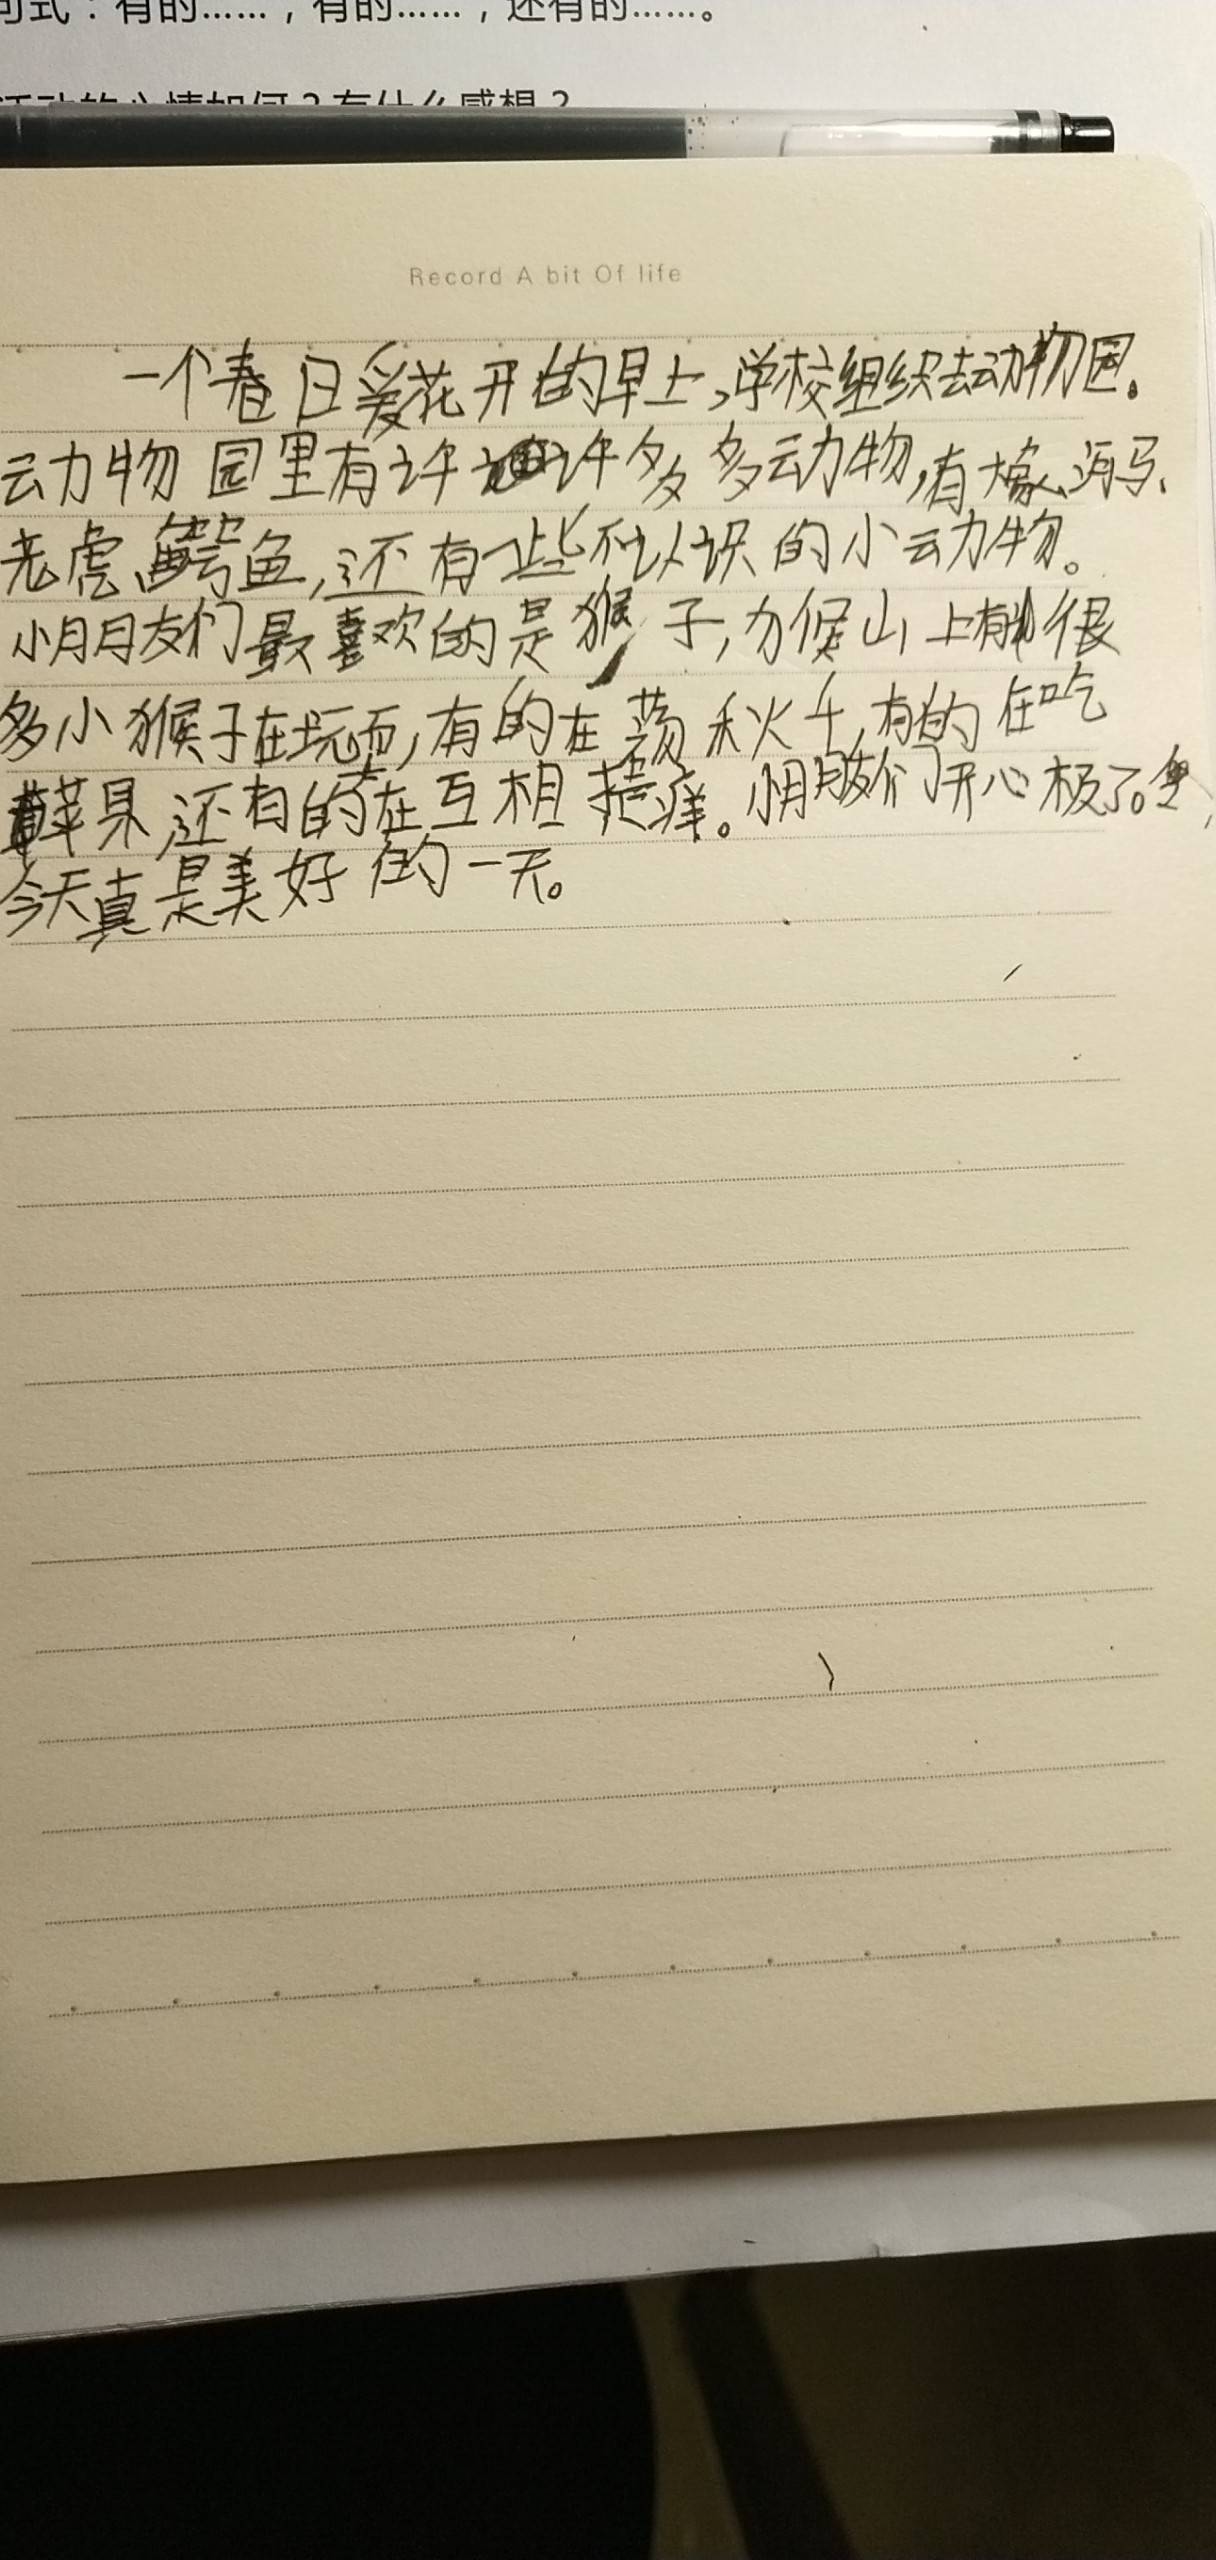 句式：有的……，有的……，还有的……。
活动的心情如何？有什么感想？
Record A bit Of life
一个春日爱花开的早上,学校组织去动物园。
动物园里有许许多多动物,有大象、河马、
老虎、鳄鱼,还有一些不认识的小动物。
小朋友们最喜欢的是猴子,猴山上有很
多小猴子在玩耍,有的在荡秋千,有的在吃
苹果,还有的在互相挠痒。小朋友们开心极了。
今天真是美好的一天。